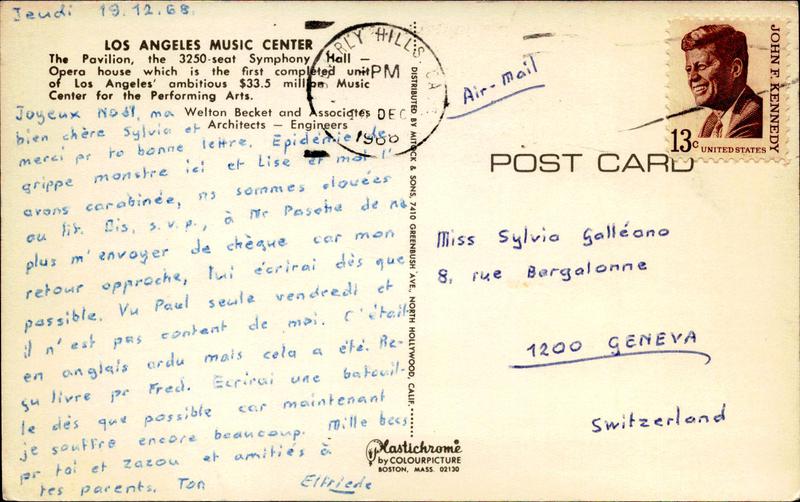 Jeudi 19.12.68.
LOS ANGELES MUSIC CENTER
The Pavilion, the 3250-seat Symphony Hall –
Opera house which is the first completed unit
of Los Angeles' ambitious $33.5 million Music
Center for the Performing Arts.
Welton Becket and Associates
Architects – Engineers
Joyeux Noël, ma
bien chère Sylvia et
merci pr ta bonne lettre. Epidémie de
grippe monstre ici et Lise et moi l'
avons carabinée, ns sommes clouées
au lit. Dis, s.v.p., à Mr Pasche de ne
plus m'envoyer de chèque car mon
retour approche, lui écrirai dès que
possible. Vu Paul seule vendredi et
il n'est pas content de moi. C'était
en anglais ardu mais cela a été. Re-
çu livre pr Fred. Ecrirai une batouil-
le dès que possible car maintenant
je souffre encore beaucoup. Mille becs
pr toi et Zazou et amitiés à
tes parents. Ton Elfriede
BEVERLY HILLS, CA
PM
DEC
1968
DISTRIBUTED BY MITOCK & SONS, 7410 GREENBUSH AVE., NORTH HOLLYWOOD, CALIF.
Plastichrome
by COLOURPICTURE
BOSTON, MASS. 02130
Air-mail
JOHN F. KENNEDY
13c UNITED STATES
POST CARD
Miss Sylvia Galléano
8, rue Bergalonne
1200 GENEVA
Switzerland